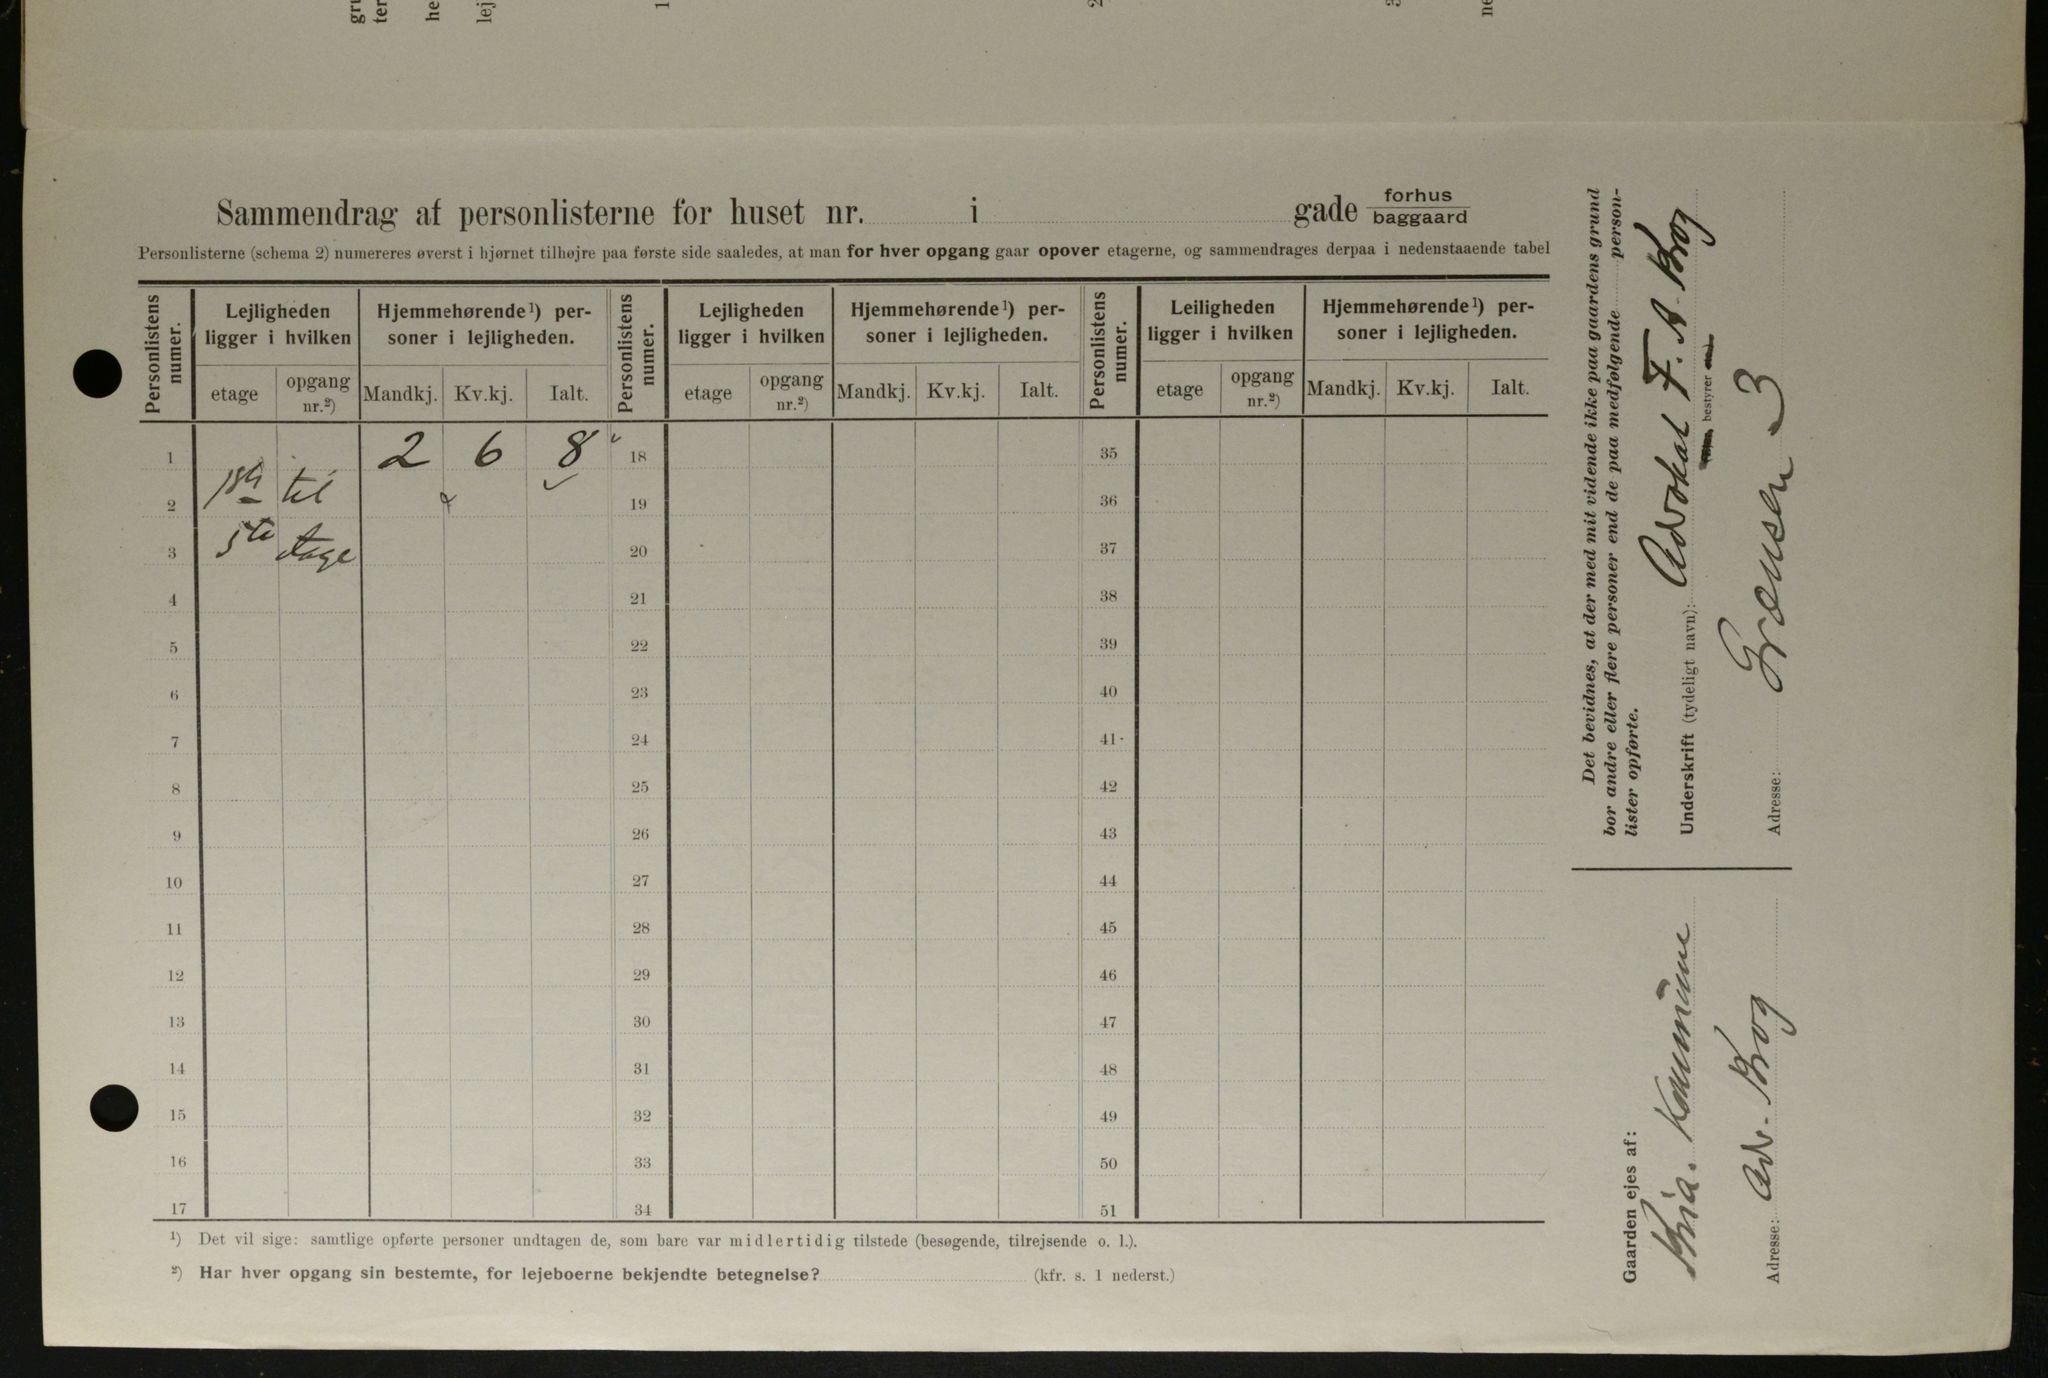 Sammendrag af personlisterne for huset nr. i gade forhus
baggaard
Personlisterne (schema 2) numereres øverst i hjørnet tilhøjre paa første side saaledes, at man for hver opgang gaar opover etagerne, og sammendrages derpaa i nedenstaaende tabel
Personlistens numer. Lejligheden ligger i hvilken Hjemmehørende¹) personer i lejligheden. Personlistens numer. Lejligheden ligger i hvilken Hjemmehørende¹) personer i lejligheden. Personlistens numer. Leiligheden ligger i hvilken Hjemmehørende¹) personer i lejligheden.
etage opgang nr.²) Mandkj. Kv.kj. Ialt. etage opgang nr.²) Mandkj. Kv.kj. Ialt. etage opgang nr.²) Mandkj. Kv.kj. Ialt.
1 2 6 8 18 35
2 1ste til 19 36
3 5te etage 20 37
4 21 38
5 22 39
6 23 40
7 24 41
8 25 42
9 26 43
10 27 44
11 28 45
12 29 46
13 30 47
14 31 48
15 32 49
16 33 50
17 34 51
¹) Det vil sige: samtlige opførte personer undtagen de, som bare var midlertidig tilstede (besøgende, tilrejsende o. l.).
²) Har hver opgang sin bestemte, for lejeboerne bekjendte betegnelse? (kfr. s. 1 nederst.)
Det bevidnes, at der med mit vidende ikke paa gaardens grund
bor andre eller flere personer end de paa medfølgende person-
lister opførte.
Underskrift (tydeligt navn): Advokat F. A. Krog
bestyrer
Adresse: Grænsen 3
Gaarden ejes af:
Kria. Kommune
Adresse: Adv. Krog